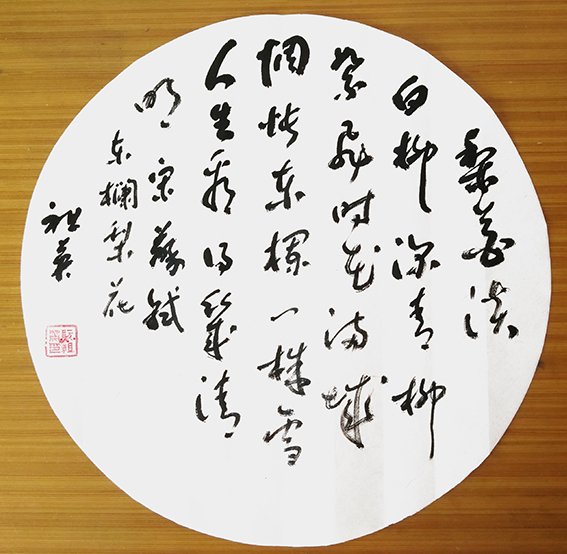 梨花淡
白柳深青柳
絮飛时花满城
惆怅东栏一株雪
人生看得幾清
明 宋蘇軾
东欄梨花
祖英